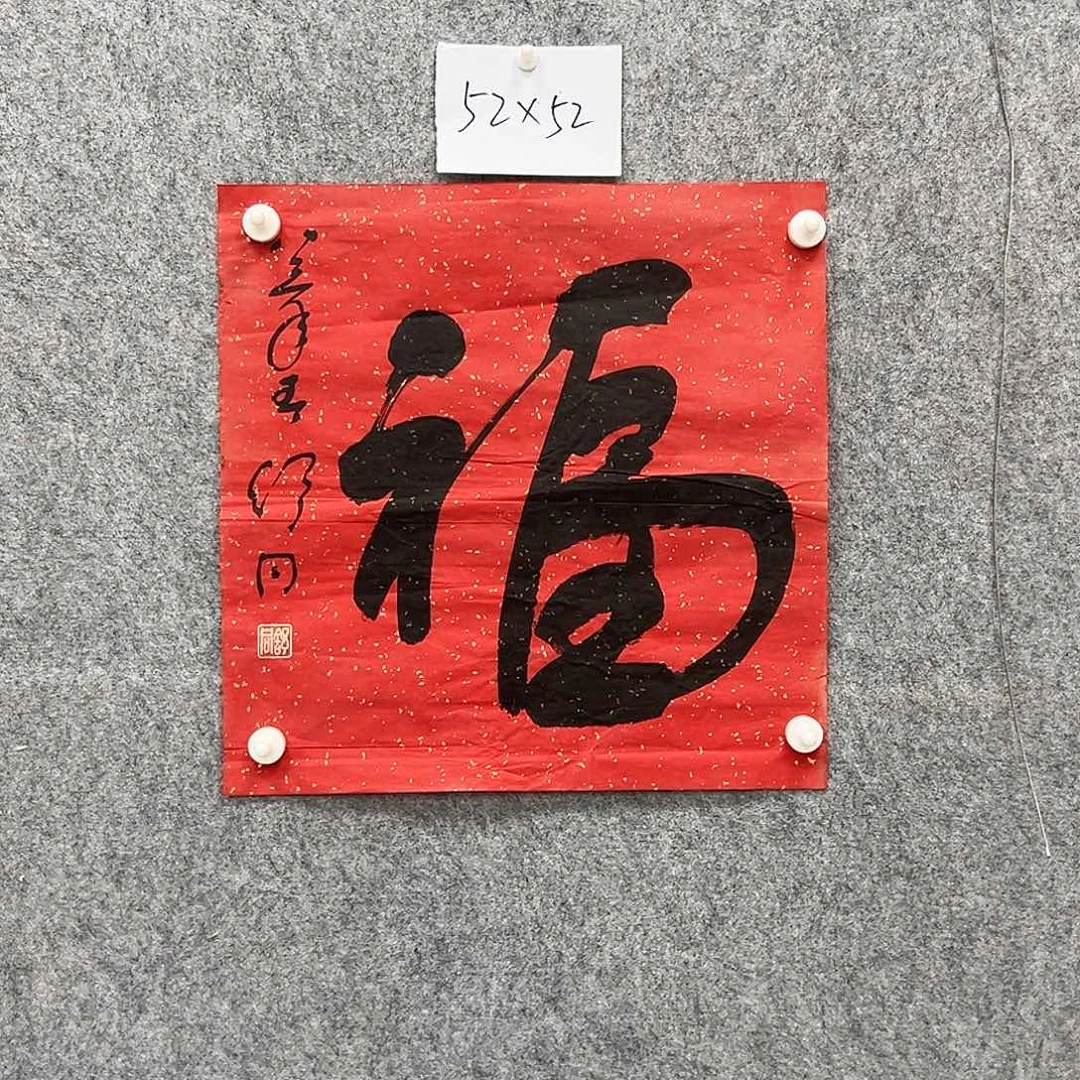 52×52
福
舒同
舒同